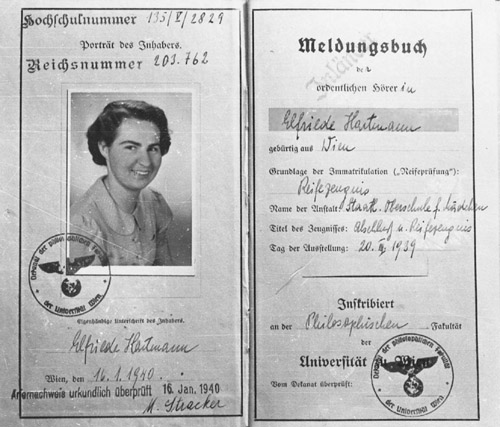 Hochschulnummer 135/V/2829
Porträt des Inhabers.
Reichsnummer 203.762
Dekanat der philosophischen Fakultät
der Universität Wien
Eigenhändige Unterschrift des Inhabers.
Elfriede Hartmann
Wien, den 16.1.1940.
Ariernachweis urkundlich überprüft 16. Jan. 1940
M. Stracker
Meldungsbuch
Inländer
der
ordentlichen Hörerin
Elfriede Hartmann
gebürtig aus Wien
Grundlage der Immatrikulation („Reifeprüfung):
Reifezeugnis
Name der Anstalt: Staatl. Oberschule f. Mädchen
Titel des Zeugnisses: Abschluß u. Reifezeugnis
Tag der Ausstellung: 20. III. 1939
Inskribiert
an der Philosophischen Fakultät
der
Universität zu Wien
Vom Dekanat überprüft:
Dekanat der philosophischen Fakultät
der Universität Wien